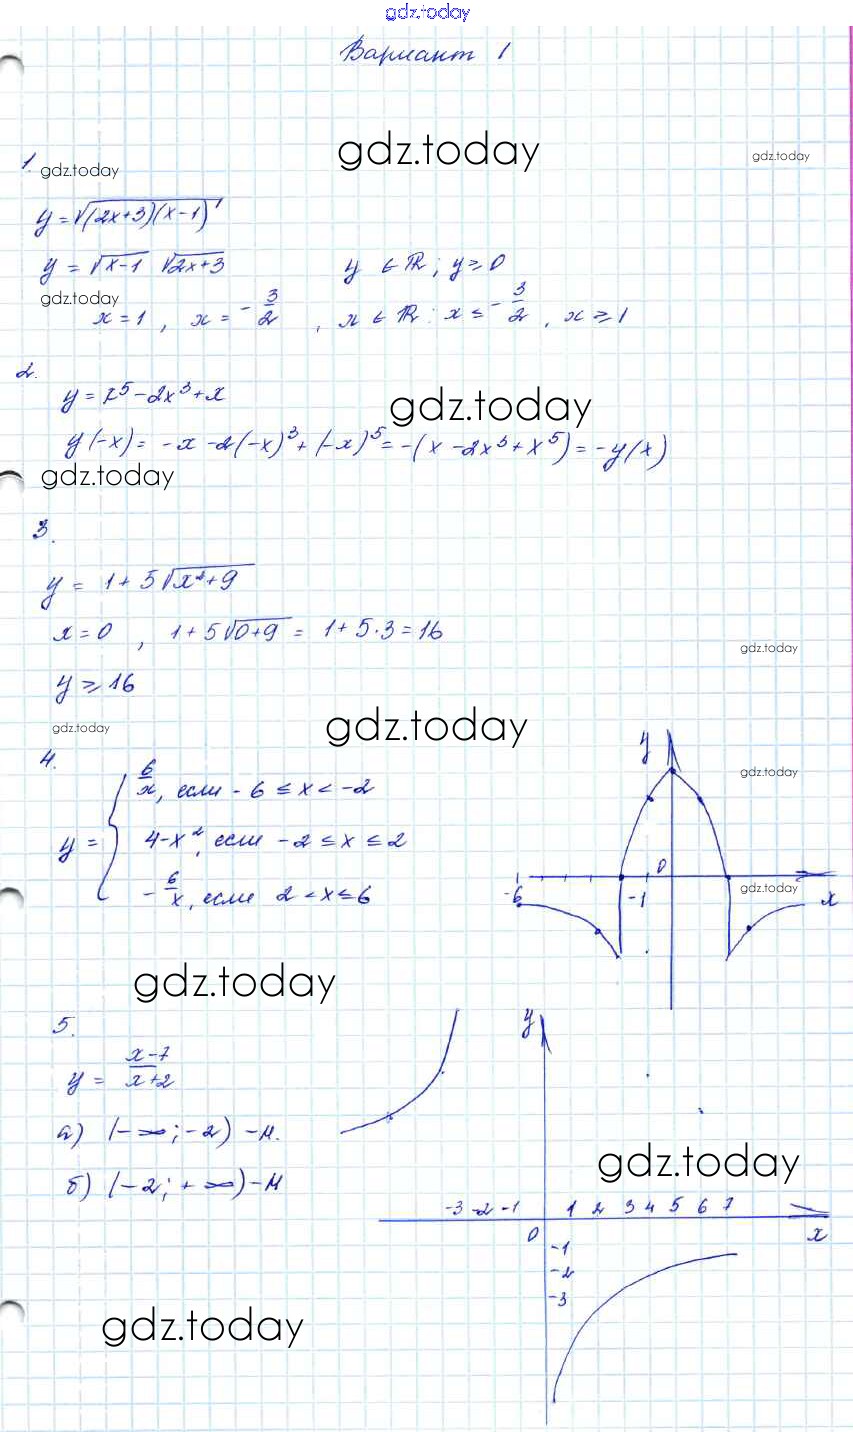 gdz.today
Вариант 1
gdz.today
gdz.today
1. gdz.today
y = √((2x+3)(x-1))
y = √(x-1) √(2x+3)   y ∈ ℝ; y ≥ 0
gdz.today
x = 1, x = -3/2, x ∈ ℝ: x ≤ -3/2, x ≥ 1
2.
y = x⁵ - 2x³ + x
gdz.today
y(-x) = -x - 2(-x)³ + (-x)⁵ = -(x - 2x³ + x⁵) = -y(x)
gdz.today
3.
y = 1 + 5√(x²+9)
x = 0, 1 + 5√(0+9) = 1 + 5·3 = 16
gdz.today
y ≥ 16
gdz.today
gdz.today
4.
y = {
6/x, если -6 ≤ x < -2
4-x², если -2 ≤ x ≤ 2
-6/x, если 2 < x ≤ 6
y
gdz.today
0
gdz.today
-6 -1 x
gdz.today
5.
y = (x-7)/(x+2)
а) (-∞; -2) - м.
б) (-2; +∞) - м
y
gdz.today
-3 -2 -1 1 2 3 4 5 6 7
0 x
-1
-2
-3
gdz.today